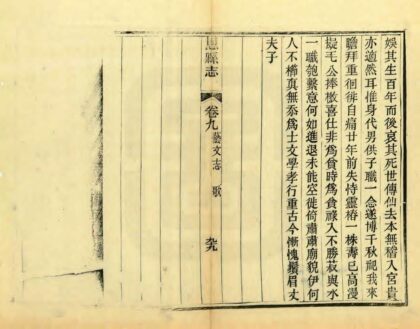 娛其生百年而後哀其死世傳仙去本無稽入宮貴
亦適然耳惟身代男供子職一念遂博千秋祀我來
瞻拜重徊徘自痛廿年前失恃靈椿一株壽已高漫
擬毛公捧檄喜仕非為貧時為貧祿入不勝菽與水
一職匏繫意何如進退未能空徙倚肅肅廟貌伊何
人不櫛真無忝為士文學孝行重古今慚愧鬚眉丈
夫子
恩縣志 卷九 藝文志 歌